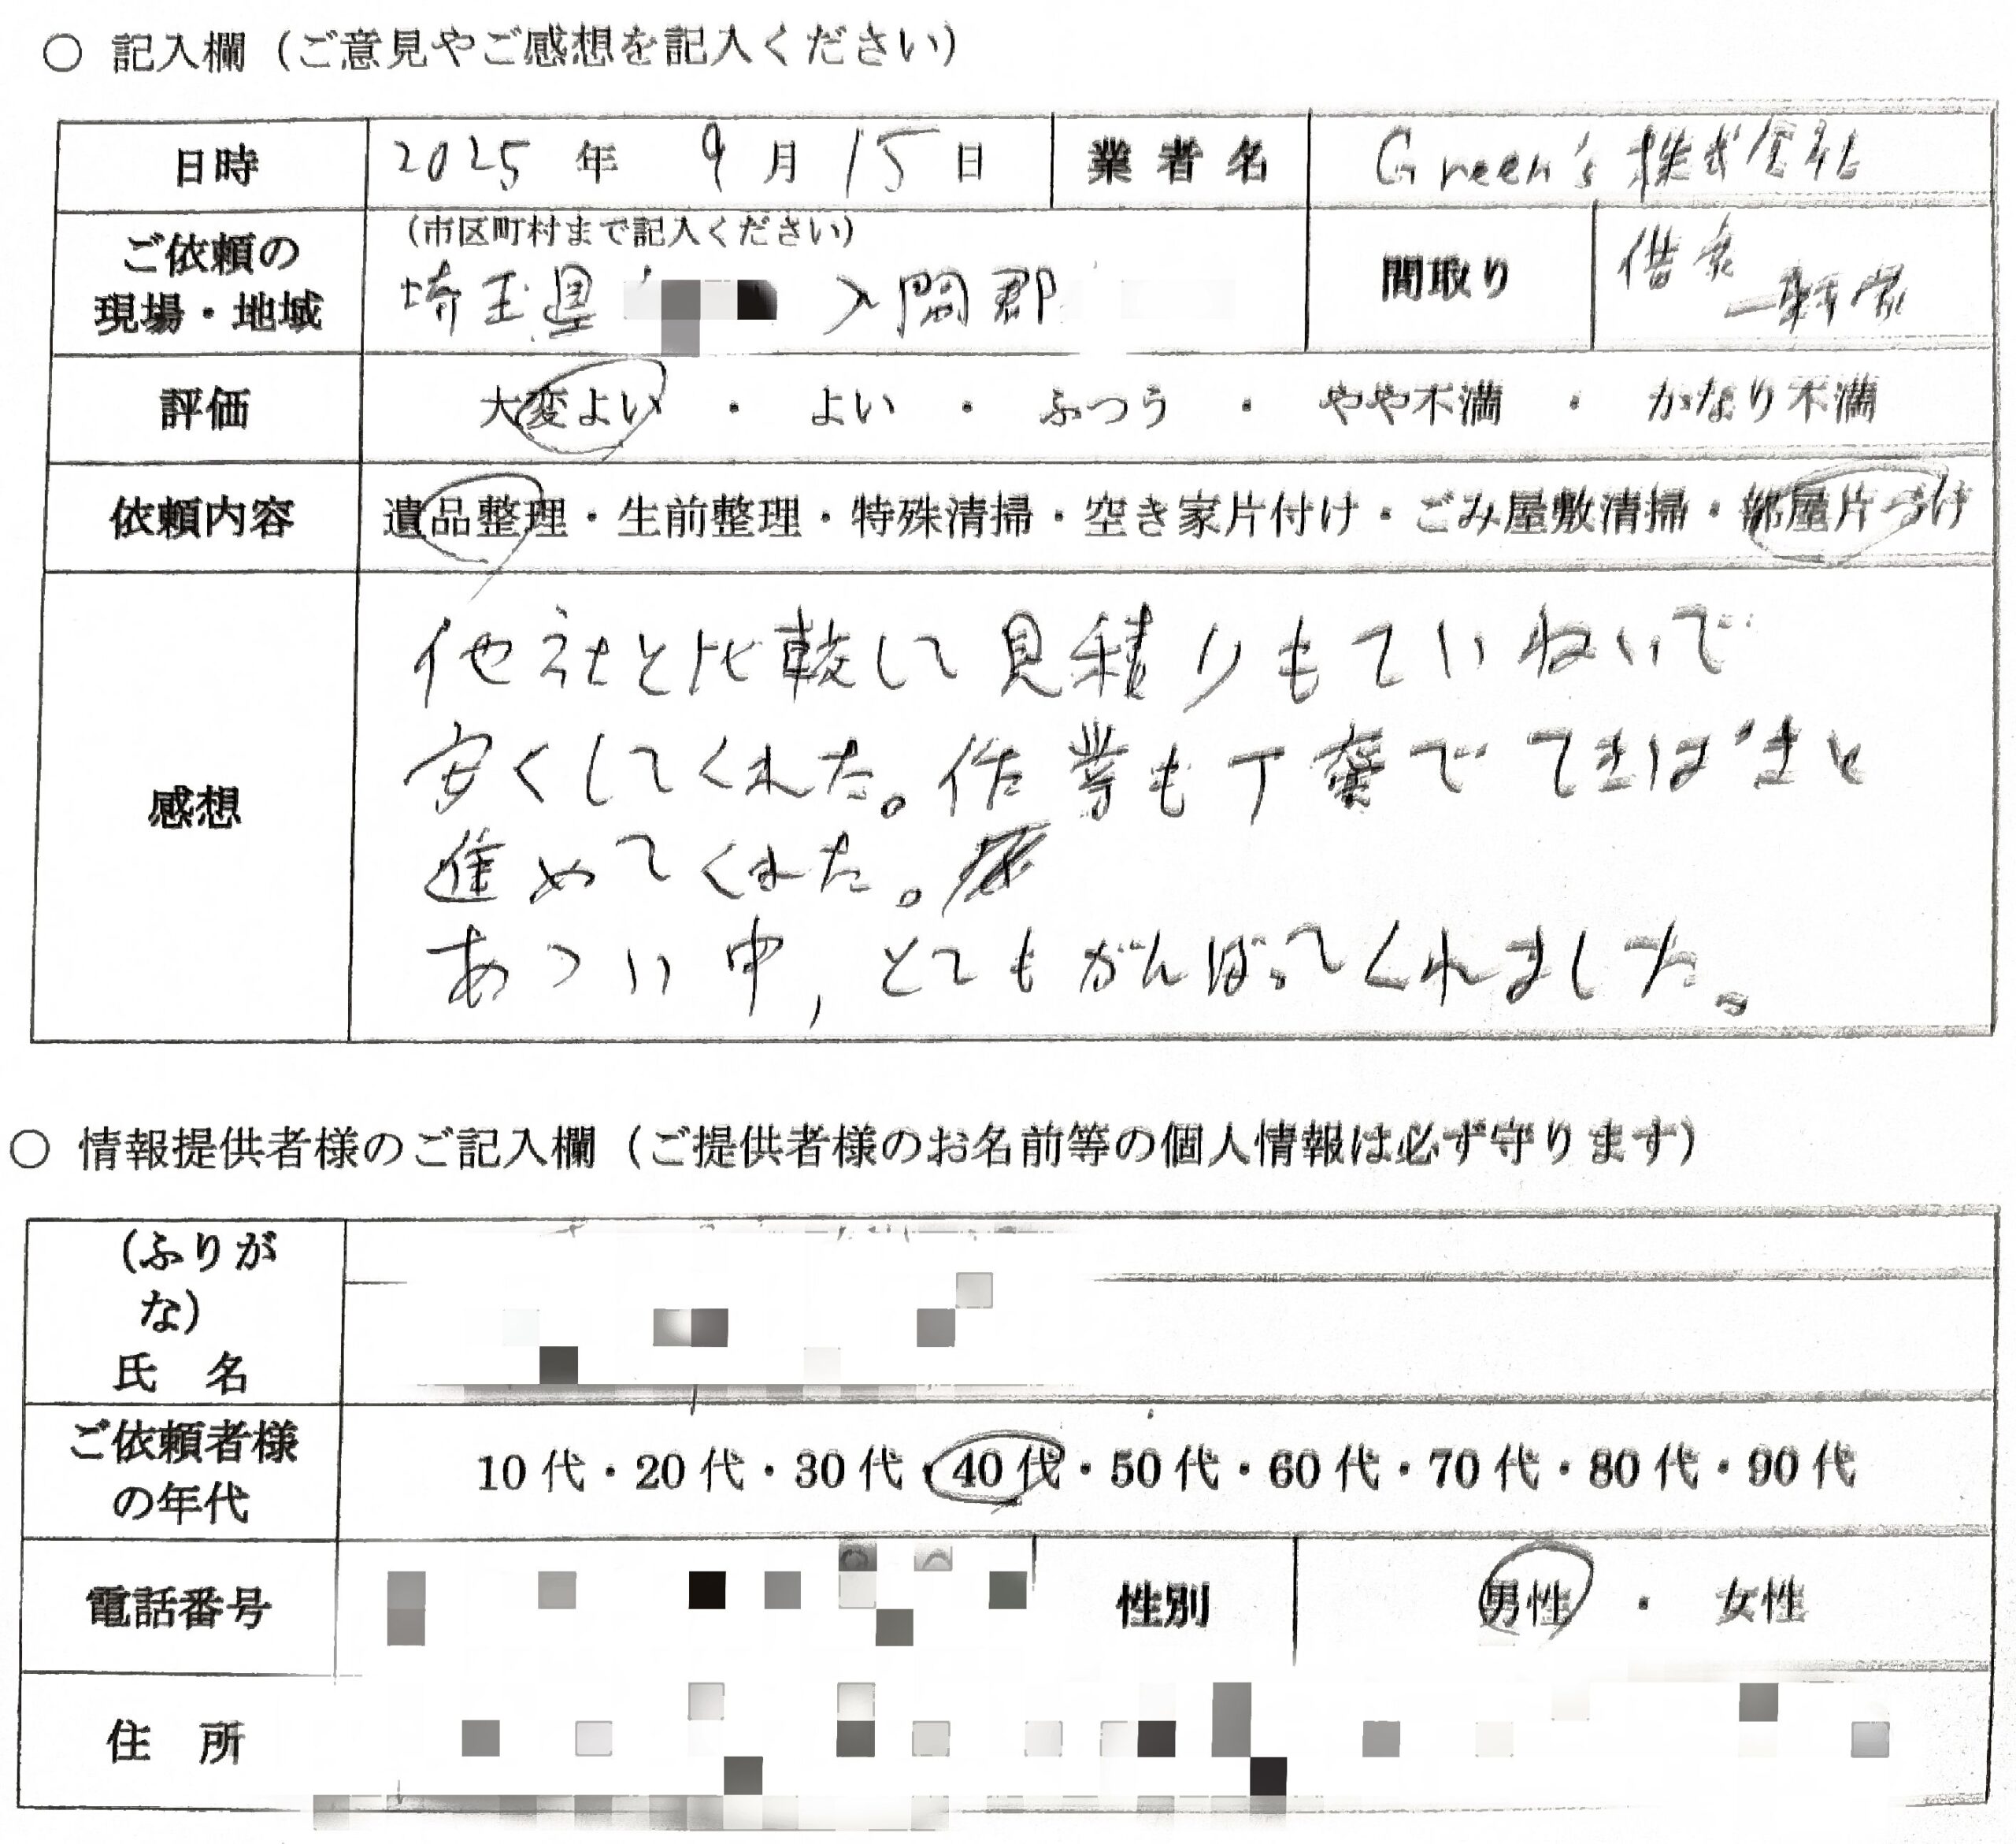 ○ 記入欄（ご意見やご感想を記入ください）
日時 2025 年 9 月 15 日 業者名 Green's 株式会社
ご依頼の現場・地域 （市区町村まで記入ください） 間取り 借家
埼玉県 入間郡 一軒家
評価 大変よい ・ よい ・ ふつう ・ やや不満 ・ かなり不満
依頼内容 遺品整理・生前整理・特殊清掃・空き家片付け・ごみ屋敷清掃・部屋片づけ
感想
他社と比較して見積りもていねいで
安くしてくれた。作業も丁寧でてきぱきと
進めてくれた。
あつい中, とてもがんばってくれました。
○ 情報提供者様のご記入欄（ご提供者様のお名前等の個人情報は必ず守ります）
（ふりが
な）
氏 名
ご依頼者様
の年代 10代・20代・30代・40代・50代・60代・70代・80代・90代
電話番号 性別 男性 ・ 女性
住 所